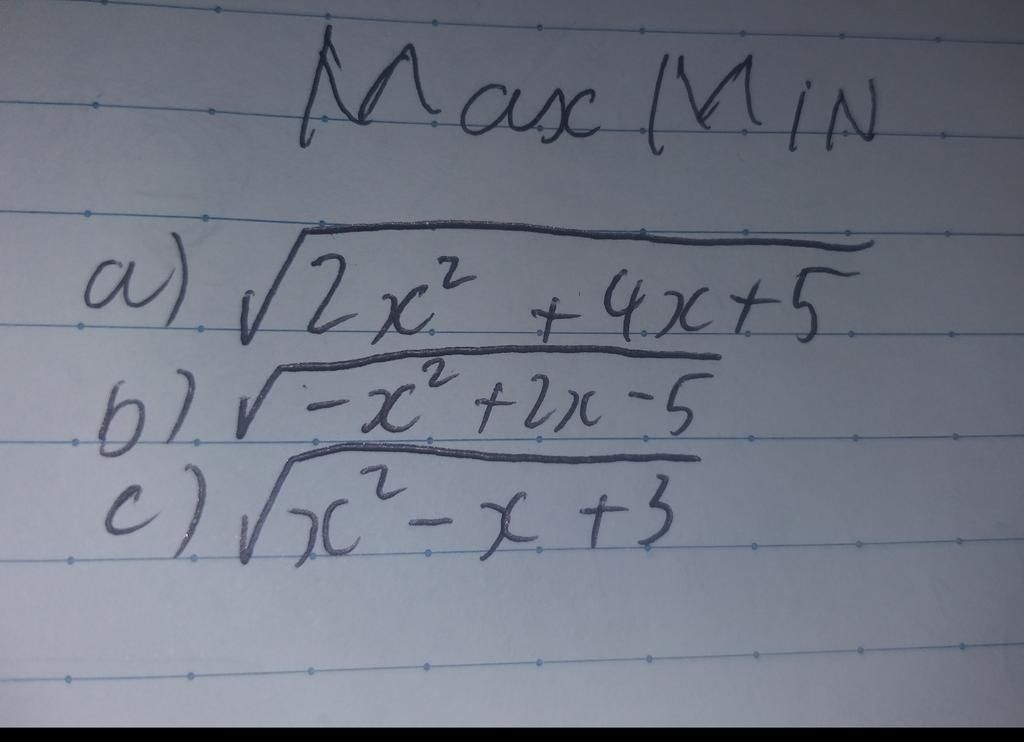 Max Min
a) √2x² + 4x + 5
b) √-x² + 2x - 5
c) √x² - x + 3